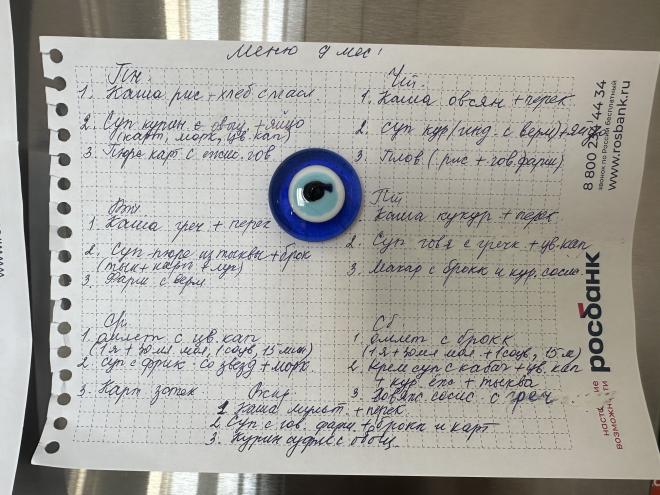 Меню 9 мес!
Пн.
1. Каша рис + хлеб с масл.
2. Суп курин с овощ + яйцо
(карт, морк, цв. кап)
3. Пюре карт с ежик. гов
Вт
1. Каша греч + перек
2. Суп-пюре из тыквы + брок
(тык + карт + лук)
3. Фарш с верм.
Ср.
1. омлет с цв. кап
(1 я + 30 мл. мол, 1 соцв, 15 мин)
2. суп с фрик. со звезд + морк.
3. Карт зотек
Чт.
1. Каша овсян + перек
2. Суп кур/инд. с верм) + яйцо
3. Плов (рис + гов. фарш)
Пт
Каша кукур + перек.
2. Суп говя с гречк + цв. кап
3. Макар с брокк и кур. сосис
Сб.
1. омлет с брокк
(1 я + 30 мл мол + 1 соцв, 15 м)
2. Крем суп с кабач + цв. кап
+ кур + тыква
3. сосис с греч
1 Каша мульт. + перек.
2. Суп с гов. фарш + брокк и карт
3. Курин суфле с овощ
8 800 234 44 34
звонок по России бесплатный
www.rosbank.ru
росбанк
возможности